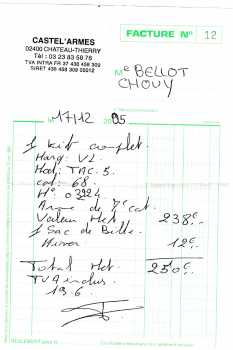 CASTEL'ARMES
02400 CHATEAU-THIERRY
Tél : 03 23 83 58 78
TVA INTRA FR 37 438 458 309
SIRET 438 458 309 00012
FACTURE N° 12
Me BELLOT
CHOUY
17/12 05
1 kit complet
Marq: V2.
Mod: TAC. 5.
cal: 68.
N° 03224
Arme de 7° cat.
Valeur Net 238€
1 Sac de Bille
12€
Total Net. 250€
TVA inclus.
19 6